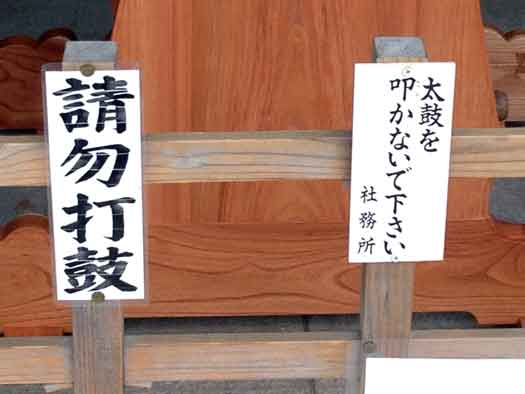 請勿打鼓
太鼓を
叩かないで下さい
社務所